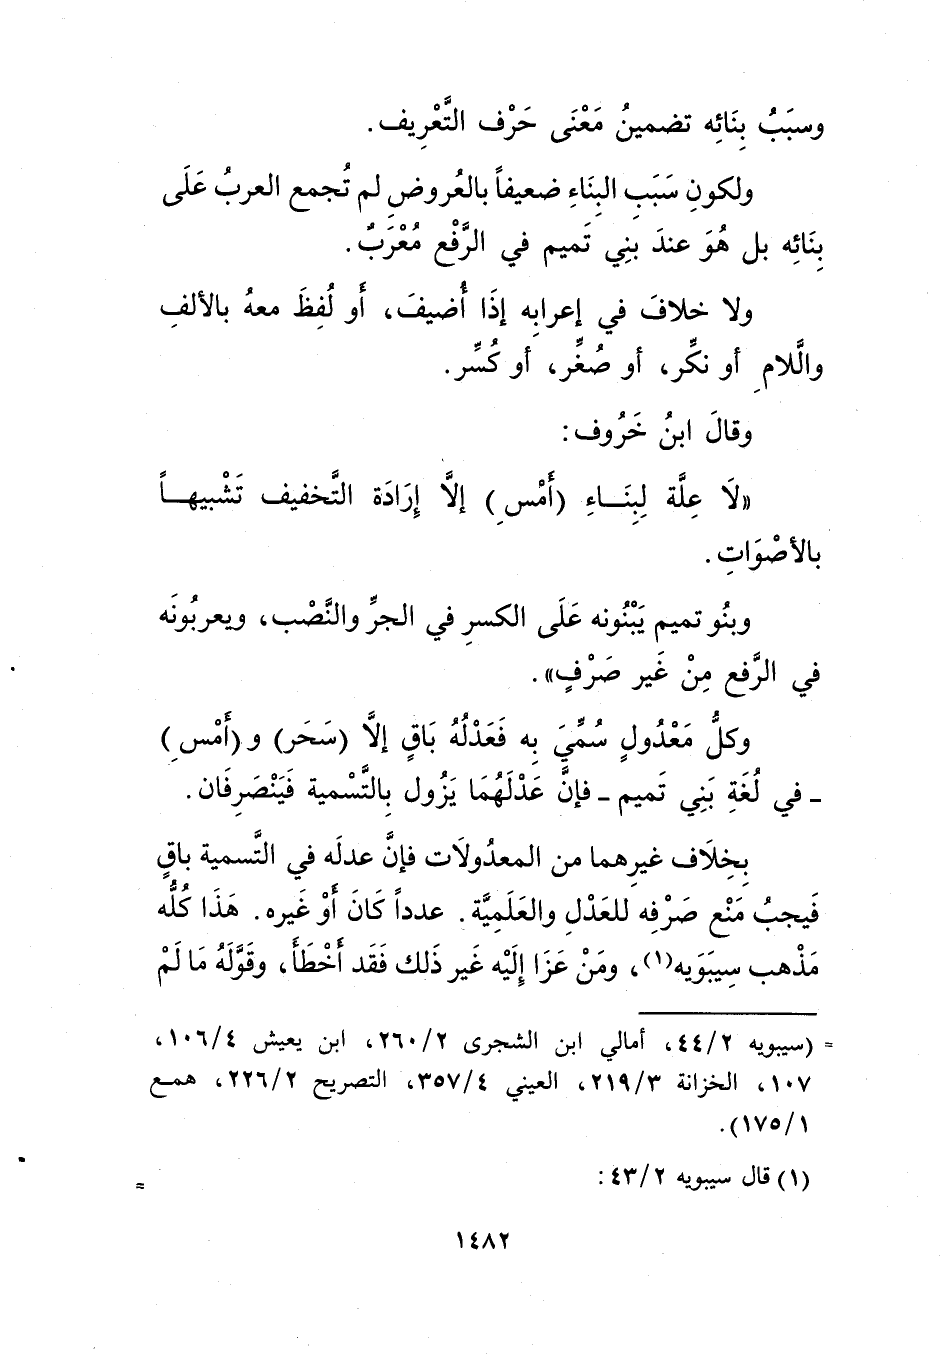 وسبَبُ بِنَائِه تضمينُ مَعْنَى حَرْف التَّعْرِيف.
ولكونِ سَبَبِ البِنَاءِ ضعيفاً بالعُروضِ لم تُجمع العربُ عَلَى
بِنَائِه بل هُوَ عندَ بنِي تَميم في الرَّفْع مُعْرَبٌ.
ولا خلافَ في إعرابِه إذَا أُضيفَ، أَو لُفِظَ معهُ بالألفِ
والَّلامِ أو نكِّر، أو صُغِّر، أو كُسِّر.
وقالَ ابنُ خَرُوف:
«لَا عِلَّة لِبِنَــاءِ (أَمْسِ) إلَّا إِرَادَة التَّخفيف تَشْبِيهــاً
بالأصْوَاتِ.
وبنُو تميم يَبْنُونه عَلَى الكسرِ في الجرِّ والنَّصْب، ويعربُونَه
في الرَّفع مِنْ غَير صَرْفٍ».
وكلُّ مَعْدُولٍ سُمِّيَ بِه فَعَدْلُهُ بَاقٍ إلَّا (سَحَر) و(أَمْسِ)
- في لُغَةِ بَنِي تَميم - فإنَّ عَدْلَهُمَا يَزُول بِالتَّسْمية فَيَنْصَرِفَان.
بِخِلَاف غيرِهما من المعدُولَات فإنَّ عدلَه في التَّسمية باقٍ
فَيجبُ مَنْع صَرْفِه للعَدْلِ والعَلَمِيَّة. عدداً كَانَ أَوْ غَيره. هَذَا كُلُّه
مَذْهب سِيبَوَيه(١)، ومَنْ عَزَا إِلَيْه غَير ذَلك فَقَد أَخْطَأَ، وقَوَّلَهُ مَا لَمْ
= (سيبويه ٤٤/٢، أمالي ابن الشجرى ٢٦٠/٢، ابن يعيش ١٠٦/٤،
١٠٧، الخزانة ٢١٩/٣، العيني ٣٥٧/٤، التصريح ٢٢٦/٢، همع
١٧٥/١).
(١) قال سيبويه ٤٣/٢: =
١٤٨٢